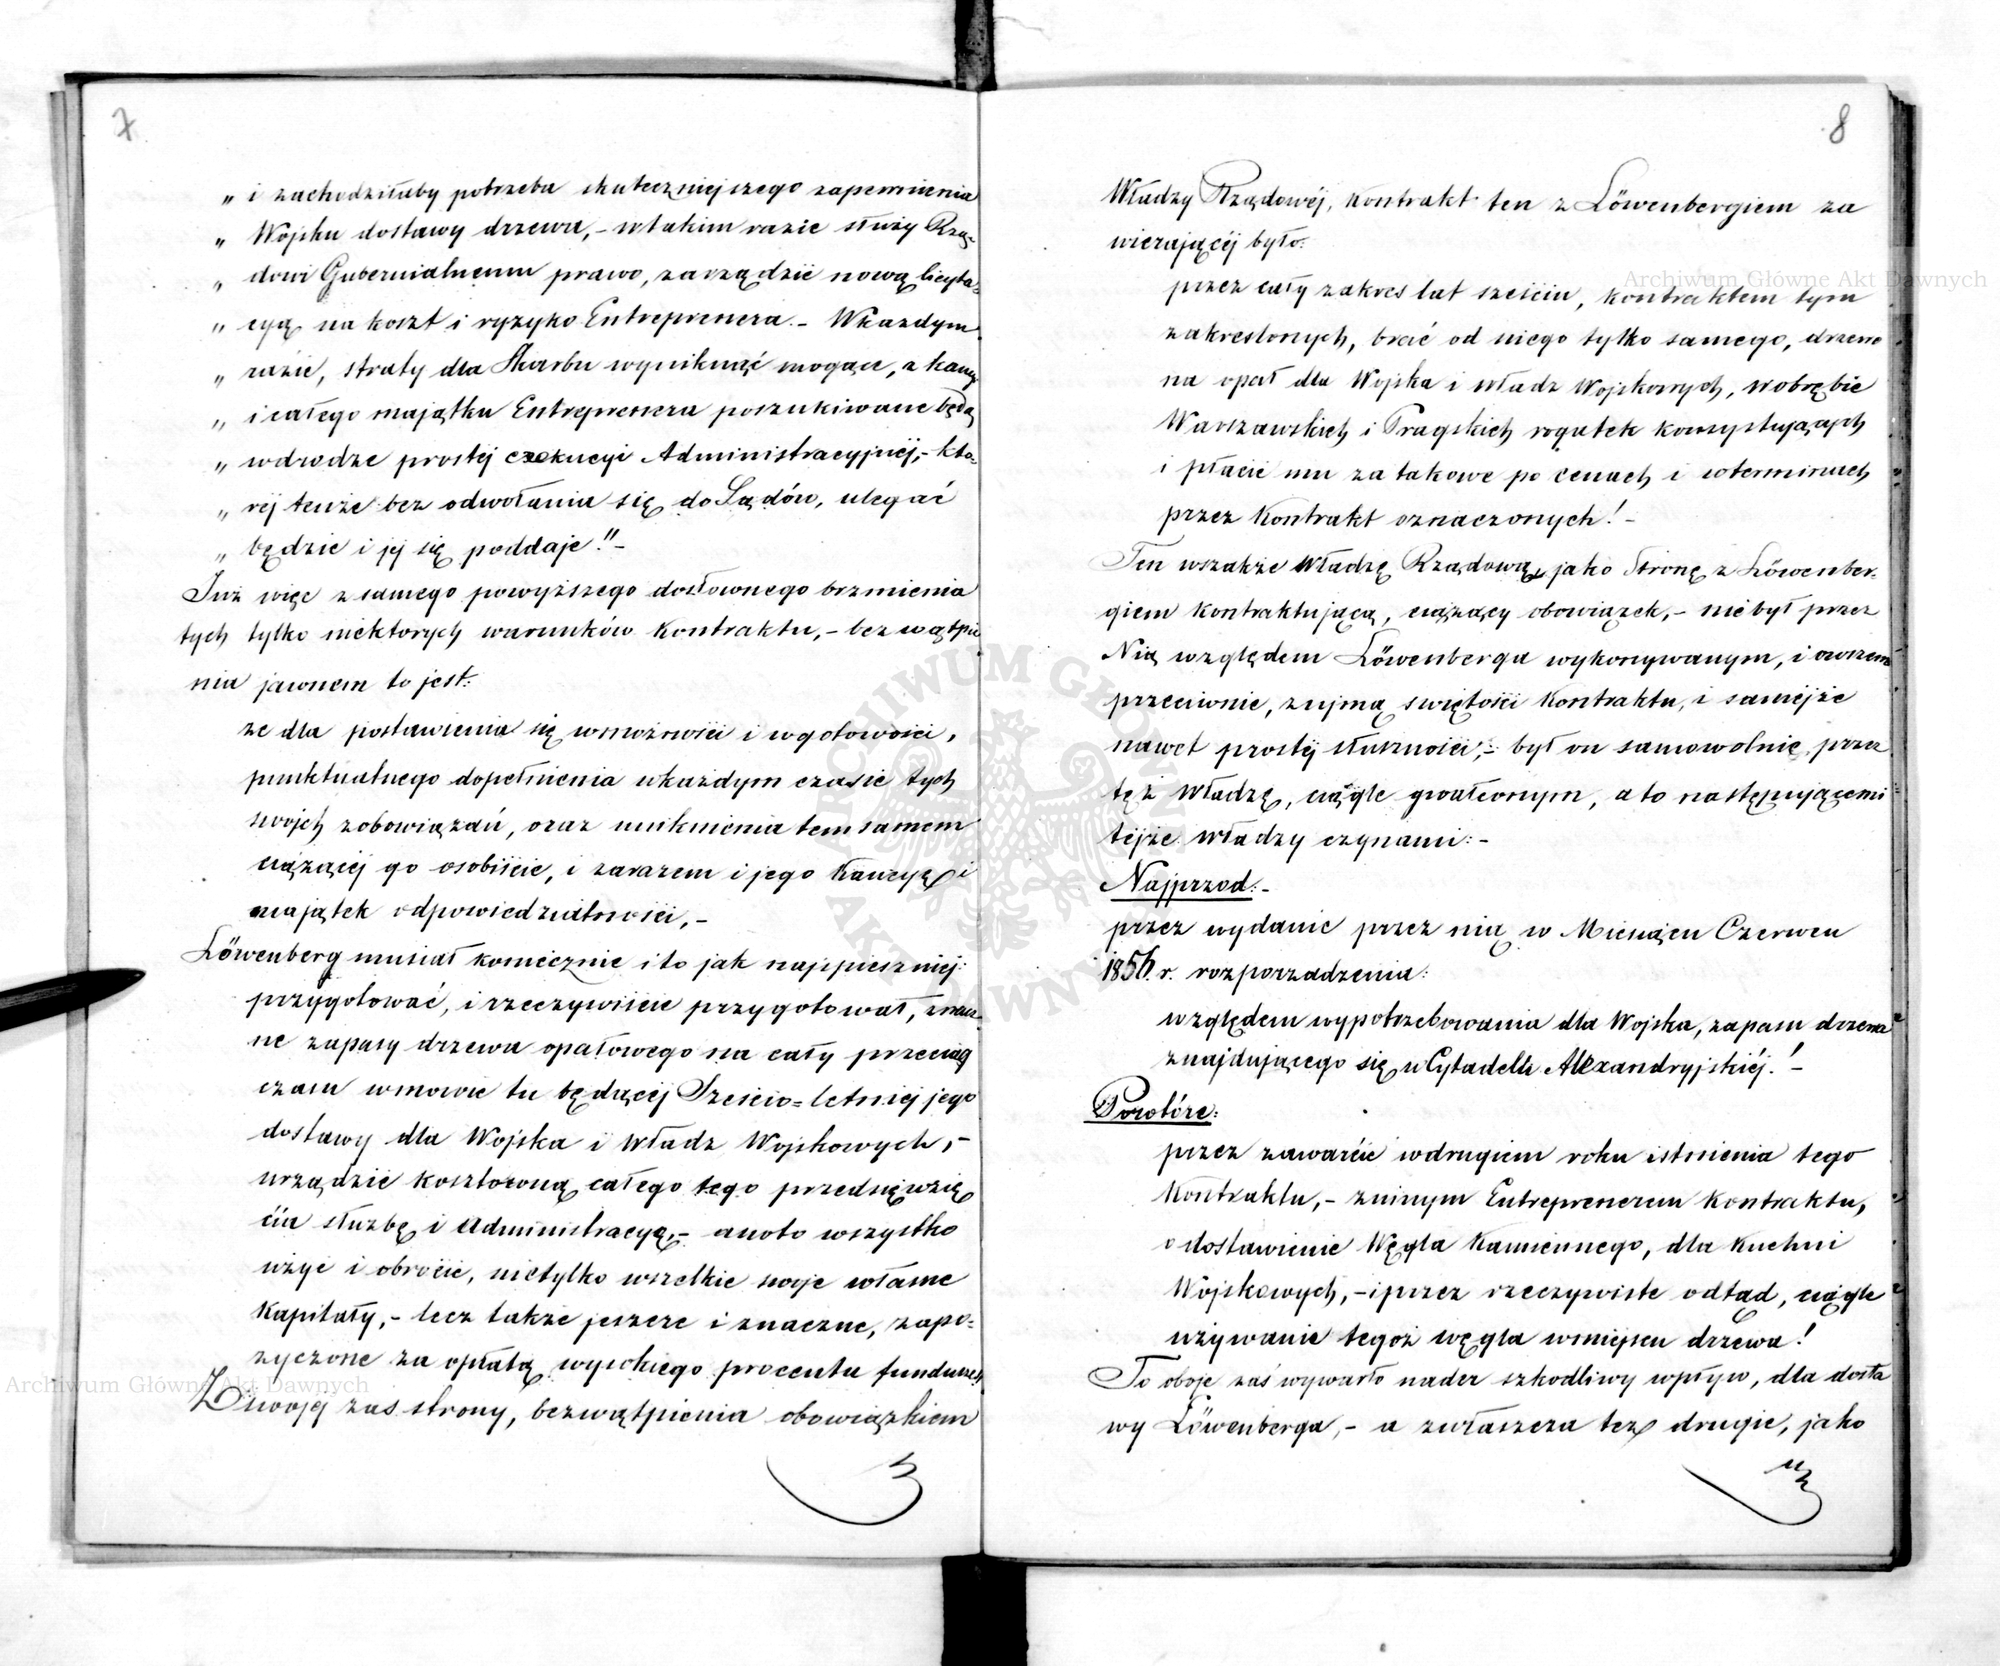 7
„ i zachodziłaby potrzeba skuteczniejszego zapewnienia
„ Wojsku dostawy drzewa, – w takim razie służy Rzą-
„ dowi Gubernialnemu prawo, zarządzić nową licyta-
„ cyą na koszt i ryzyko Entreprenera. – W każdym
„ razie, straty dla Skarbu wyniknąć mogące, z kaucyi
„ i całego majątku Entreprenera poszukiwane będą
„ w drodze prostéj exekucyi Administracyjnéj, – któ-
„ réj tenże bez odwołania się do Sądów, ulegać
„ będzie i jej się poddaje." –
Już więc z samego powyższego dosłownego brzmienia
tych tylko niektorych warunków Kontraktu, – bez wątpie
nia jawnem to jest:
że dla postawienia się w możności i w gotowości,
punktualnego dopełnienia w każdym czasie tych
swojch zobowiązań, oraz uniknienia tem samem
ciążącéj go osobiście, i zarazem i jego Kaucyę i
majątek odpowiedzialności, –
Löwenberg musiał koniecznie i to jak najspieszniej:
przygotować, i rzeczywiście przygotował, znacz-
ne zapasy drzewa opałowego na cały przeciąg
czasu w mowie tu będącéj Sześcio=letniéj jego
dostawy dla Wojska i Władz Wojskowych, –
urządzić kosztowną całego tego przedsięwzię
cia służbę i Administracyą, – a na to wszystko
użyć i obrócić, nietylko wszelkie swoje własne
Kapitały, – lecz także jeszcze i znaczne, zapo-
życzone za opłatą wysokiego procentu fundusze,
Z swojej zaś strony, bez wątpienia obowiązkiem
8
Władzy Rządowéj, Kontrakt ten z Löwenbergiem za
wierającéj było:
przez cały zakres lat sześciu, kontraktem tym
zakreślonych, brać od niego tylko samego, drzewo
na opał dla Wojska i Władz Wojskowych, w obrębie
Warszawskich i Pragskich rogatek konsystujących
i płacić mu za takowe po cenach i w terminach
przez Kontrakt oznaczonych! –
Ten wszakże Władzę Rządową, jako Stronę z Löwenber-
giem Kontraktującą, ciążący obowiązek, – nie był przez
Nią względem Löwenberga wykonywanym, i owszem
przeciwnie, z ujmą świętości Kontraktu, i samejże
nawet prostéj słuszności, – był on samowolnie przez
też Władzę, ciągle gwałconym, a to następującemi
tejże Władzy czynami: –
Najprzod: –
przez wydanie przez nią w Miesiącu Czerwcu
1856 r. rozporządzenia:
względem wypotrzebowania dla Wojska, zapasu drzewa
znajdującego się w Cytadelli Alexandryjskiéj! –
Powtóre:
przez zawarcie w drugiem roku istnienia tego
Kontraktu, – z innym Entreprenerem Kontraktu,
o dostawienie Węgla Kamiennego, dla Kuchni
Wojskowych, – i przez rzeczywiste odtąd, ciągle
używanie tegoż węgla w miejscu drzewa!
To oboje zaś wywarło nader szkodliwy wpływ, dla dosta
wy Löwenberga, – a zwłaszcza też drugie, jako
Archiwum Główne Akt Dawnych
Archiwum Główne Akt Dawnych
ARCHIWUM GŁÓWNE AKT DAWNYCH